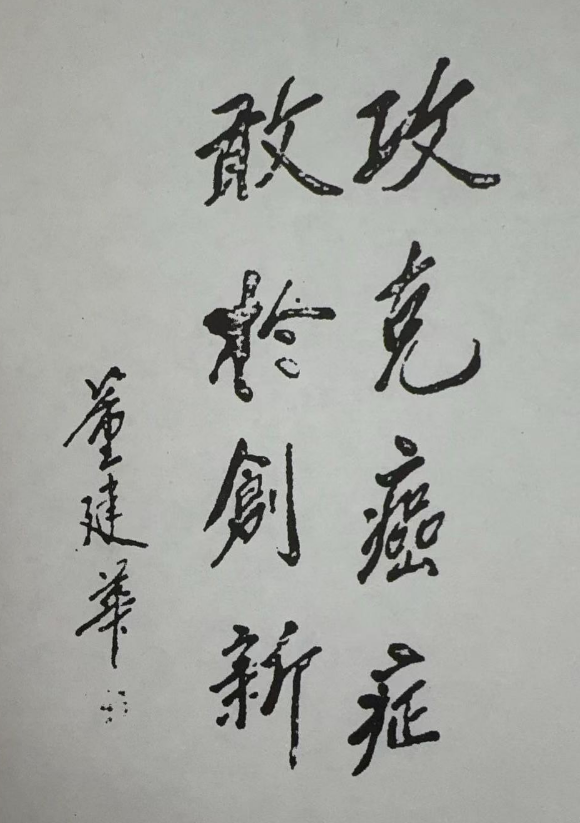 攻克癌症
敢於創新
董建華